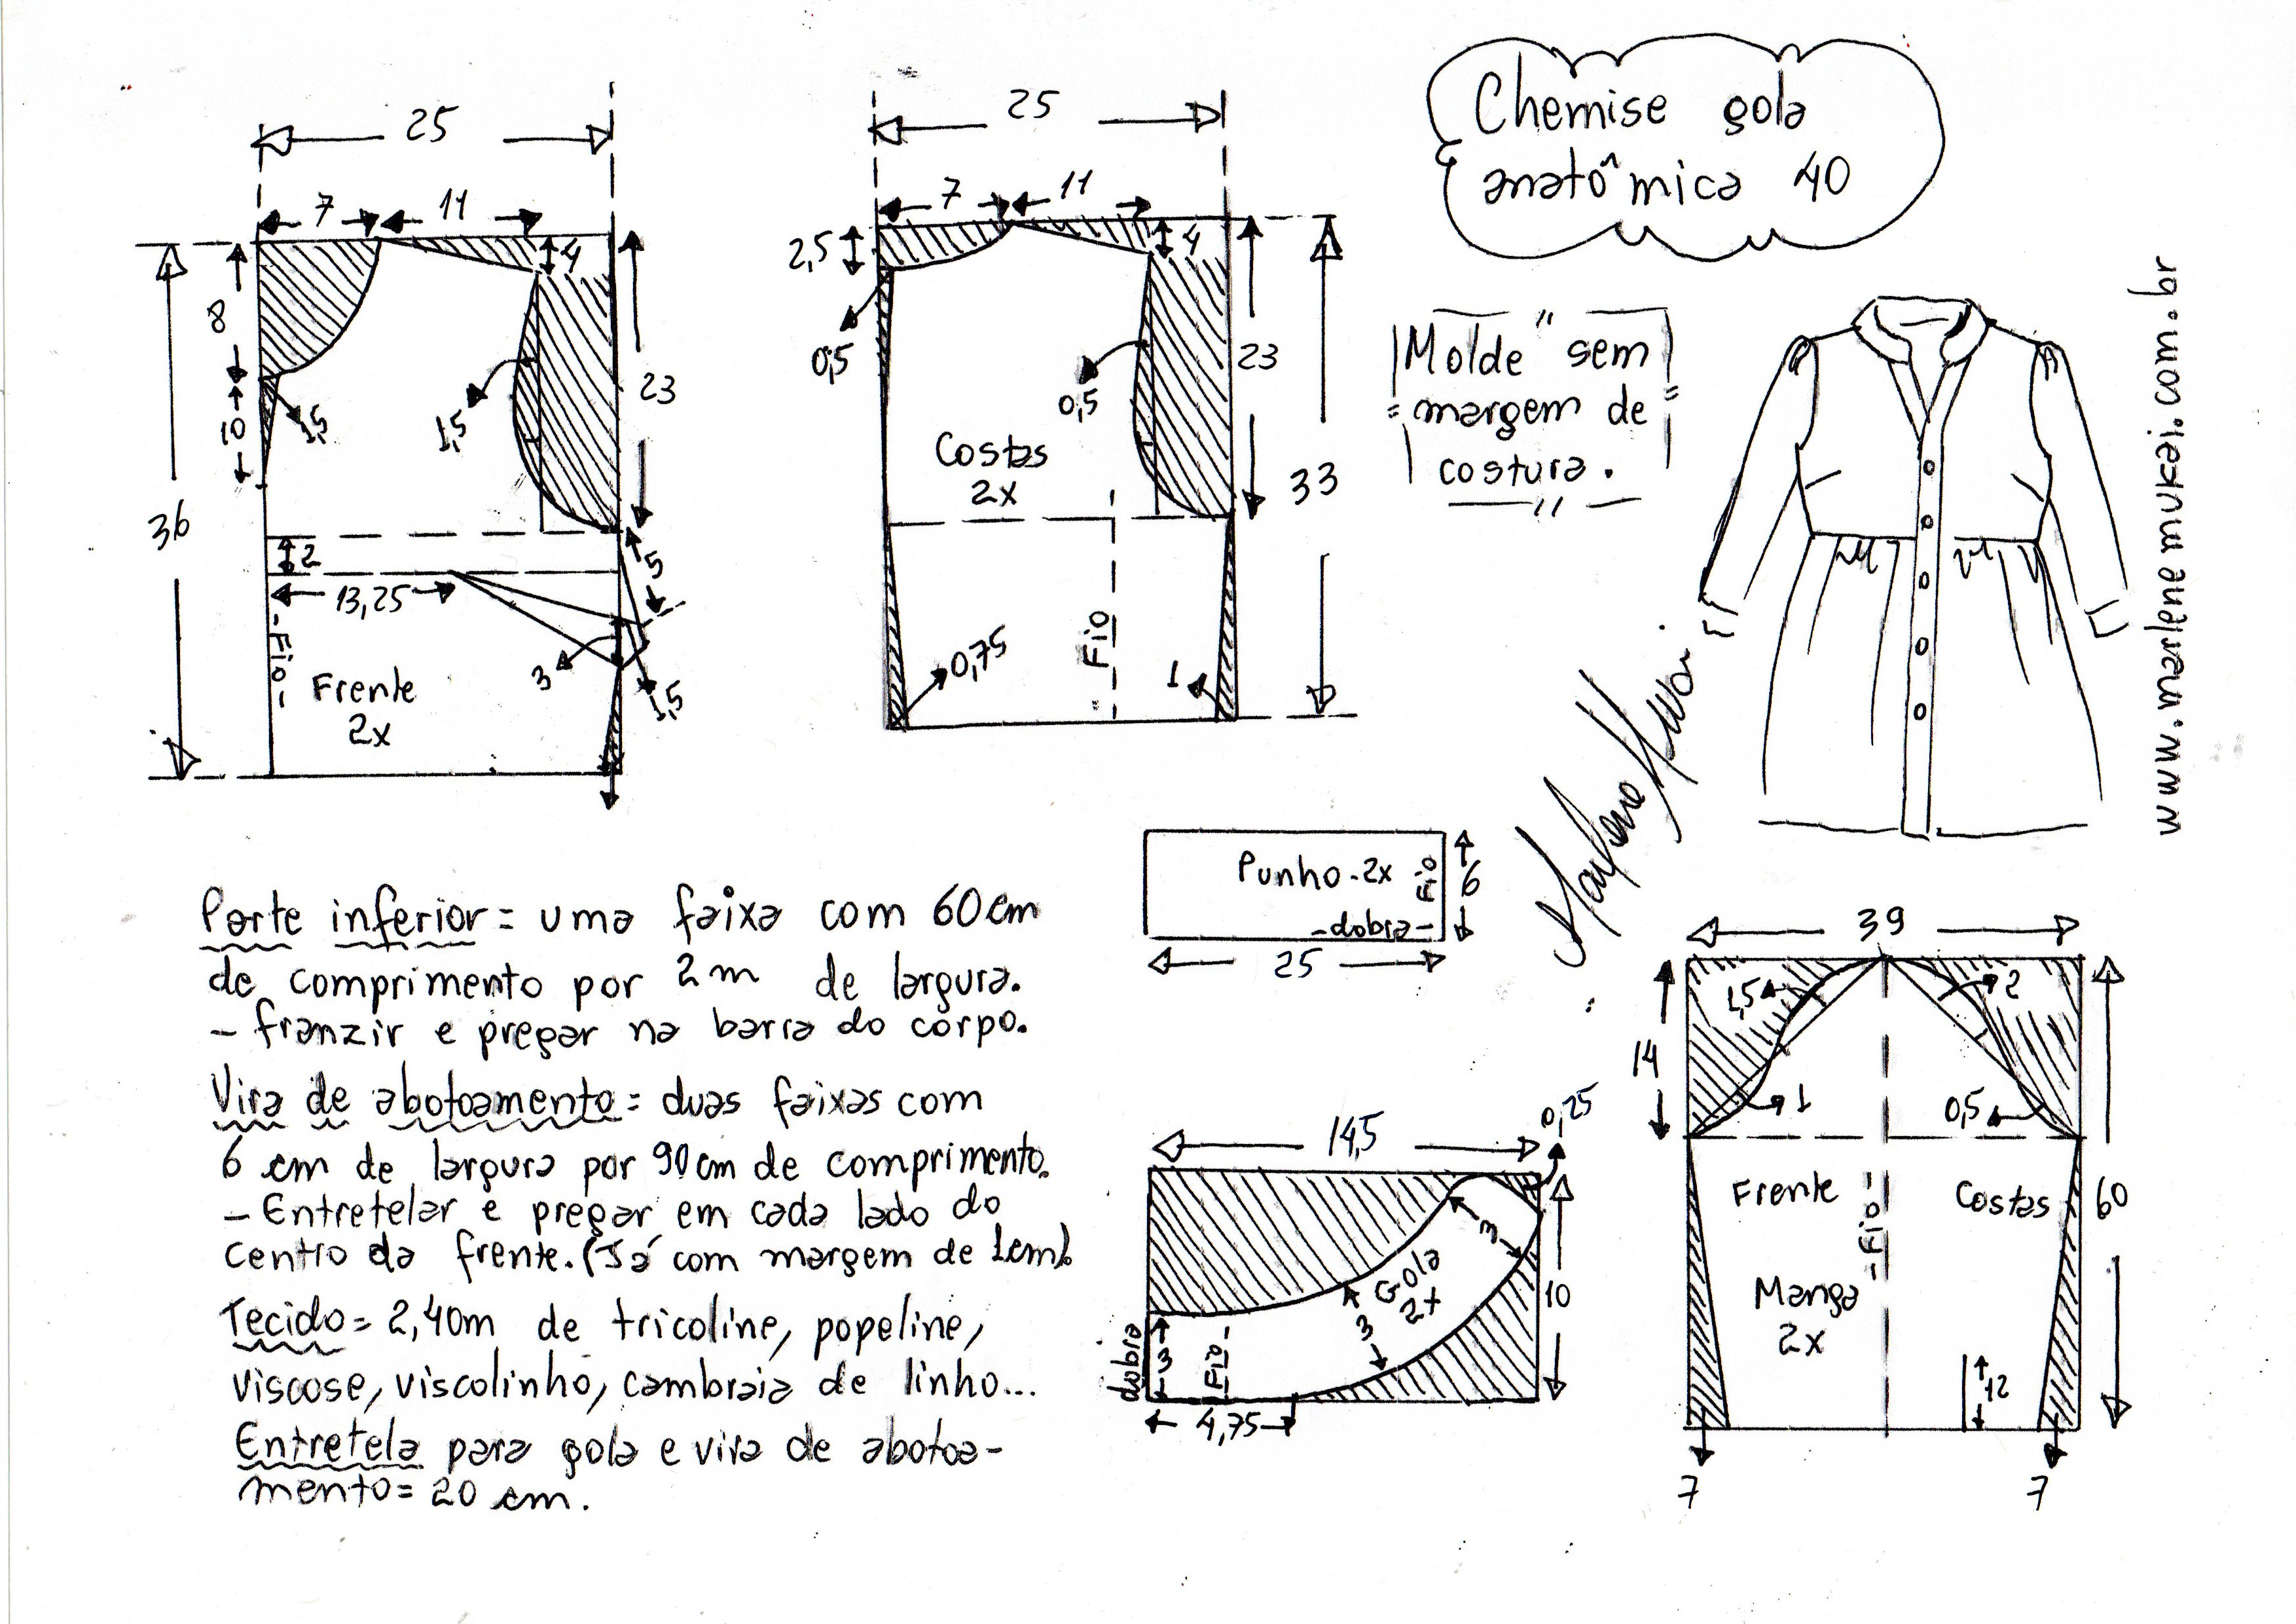 Chemise gola
anatômica 40
"Molde sem
margem de
costura."
www.marlenemukai.com.br
25
7
11
4
8
10
1,5
1,5
23
36
2
13,25
5
3
1,5
- Fio -
Frente
2x
25
7
11
2,5
4
0,5
0,5
23
33
Costas
2x
Fio
0,75
1
Punho - 2x
Fio
6
- dobra -
25
Marlene Mukai
39
1,5
2
14
1
0,5
Frente
Costas
60
- Fio -
Manga
2x
12
7
7
14,5
0,25
3
Gola
2x
3
10
dobra
3
Fio -
4,75
Parte inferior = uma faixa com 60 cm
de comprimento por 2 m de largura.
- franzir e pregar na barra do corpo.
Vira de abotoamento = duas faixas com
6 cm de largura por 90 cm de comprimento.
- Entretelar e pregar em cada lado do
centro da frente. (Já com margem de 1cm).
Tecido = 2,40m de tricoline, popeline,
viscose, viscolinho, cambraia de linho...
Entretela para gola e vira de abotoa-
mento = 20 cm.